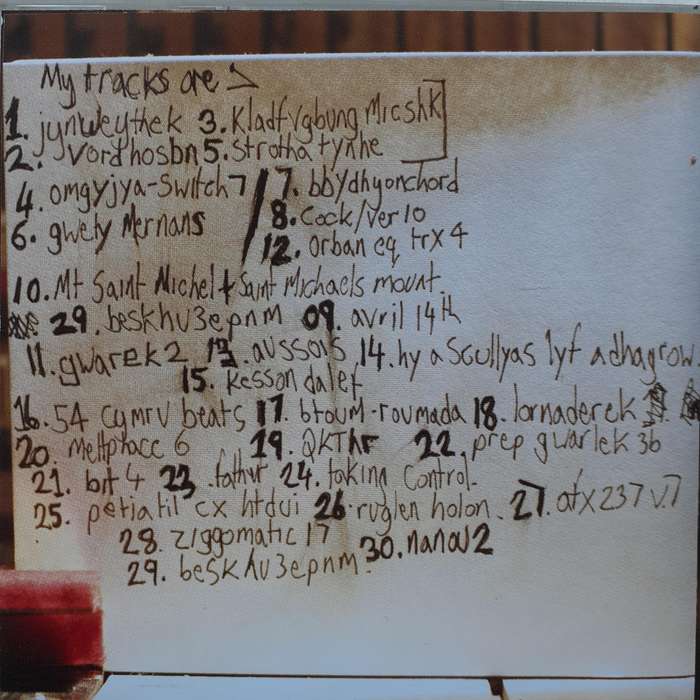 My tracks are >
1. jynweythek 3. Kladfvgbung Micshk
2. Vordhosbn 5. strotha tynhe
4. omgyjya-Switch 7 / 7. bbydhyonchord
6. gwely Mernans 8. Cock/Ver 10
12. orban eq trx 4
10. Mt Saint Michel + Saint Michaels mount.
29. beskhu3epnm 09. avril 14th
11. gwarek 2 13. aussois 14. hy a Scullyas lyf adhagrow.
15. Kesson dalef
16. 54 cymru beats 17. btoum-roumada 18. lornaderek
20. meltphace 6 19. QKThr 22. prep gwarlek 3b
21. bit 4 23. father 24. taking Control.
25. petiatil cx htdui 26. ruglen holon. 27. afx237 v.7
28. ziggomatic 17 30. nanou2
29. beskhu3epnm.